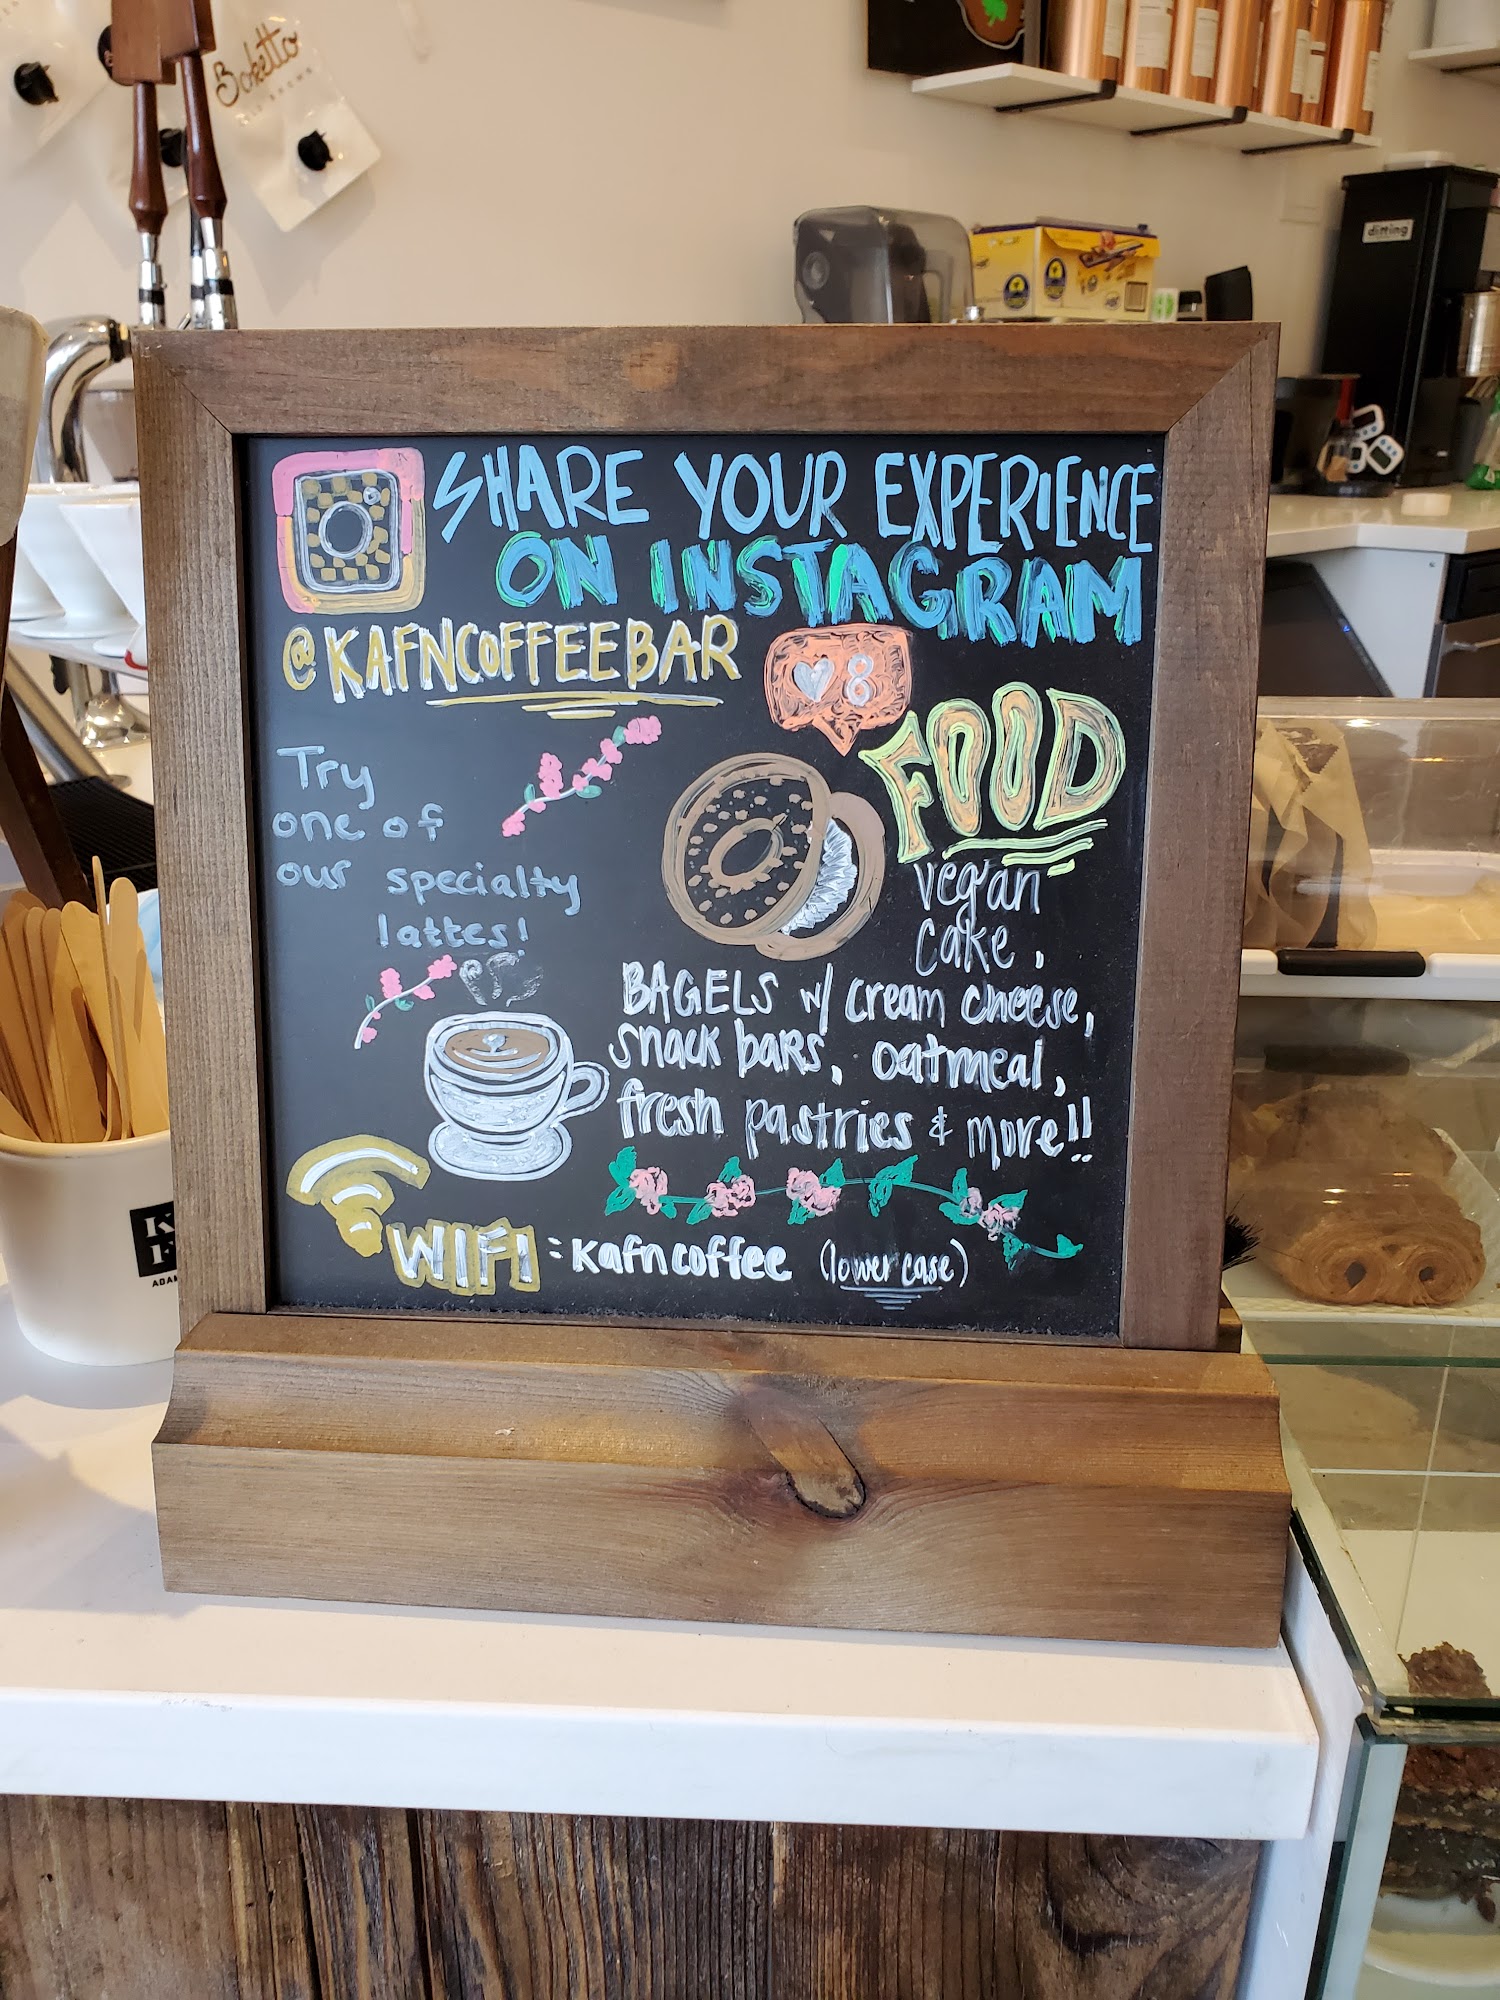 Boketto
ditting
SHARE YOUR EXPERIENCE
ON INSTAGRAM
@KAFNCOFFEEBAR
8
FOOD
Try
one of
our specialty
lattes!
vegan
cake,
BAGELS w/ cream cheese,
snack bars, oatmeal,
fresh pastries & more!!
WIFI = kafncoffee (lowercase)